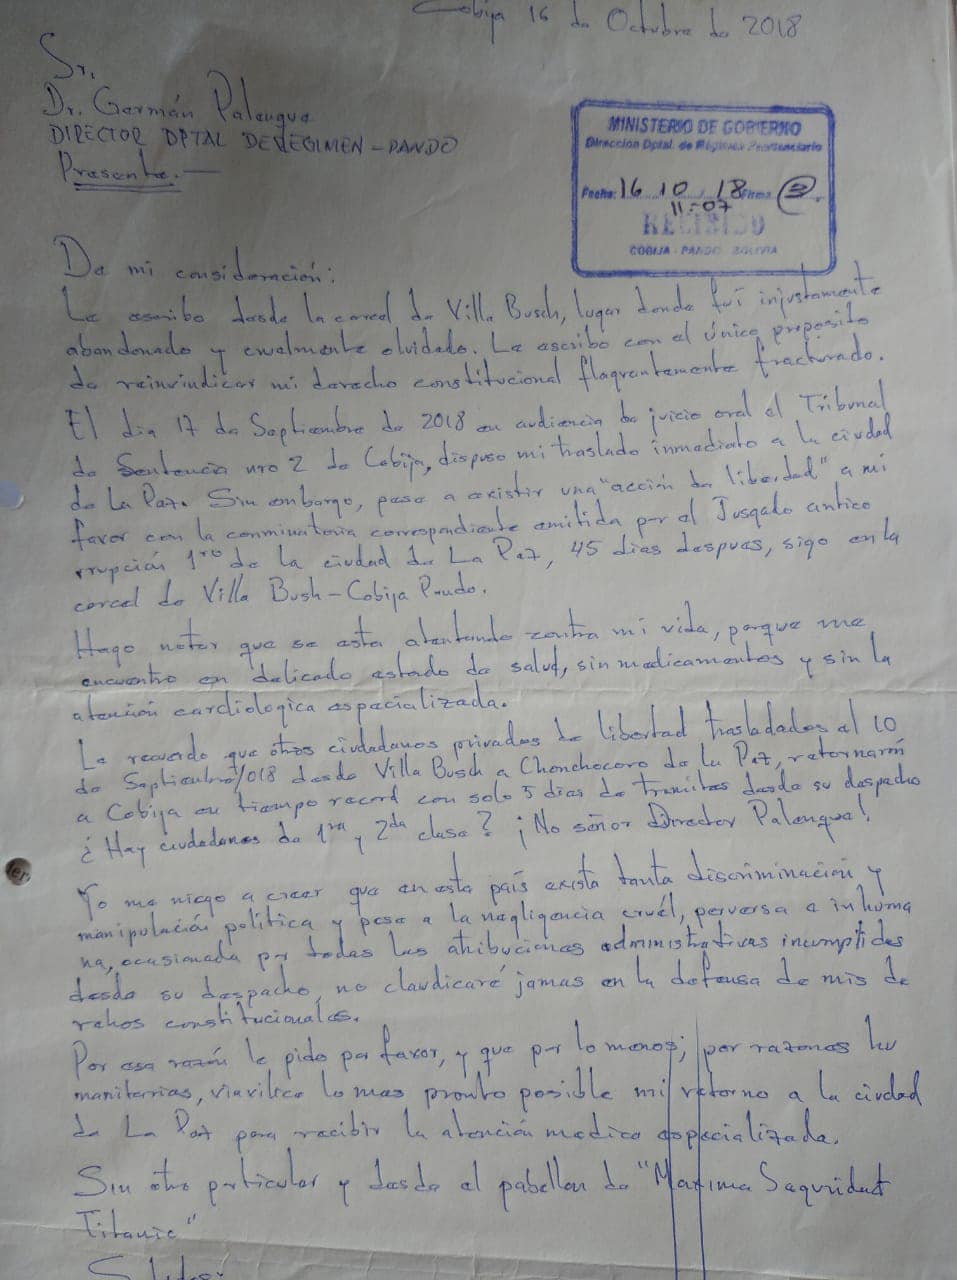 Cobija 16 de Octubre de 2018
Sr.
Dr. Germán Palenque
DIRECTOR DPTAL DE REGIMEN - PANDO
Presente.-
MINISTERIO DE GOBIERNO
Dirección Dptal. de Régimen Penitenciario
Fecha: 16 10 18 Firma
11:07
RECIBIDO
COBIJA - PANDO BOLIVIA
De mi consideración:
Le escribo desde la carcel de Villa Busch, lugar donde fuí injustamente
abandonado y cruelmente olvidado. Le escribo con el único proposito
de reinvindicar mi derecho constitucional flagrantemente fracturado.
El dia 17 de Septiembre de 2018 en audiencia de juicio oral el Tribunal
de Sentencia nro 2 de Cobija, dispuso mi traslado inmediato a la ciudad
de La Paz. Sin embargo, pese a existir una "acción de libertad" a mi
favor con la conminatoria correspondiente emitida por el Jusgado antico
rrupción 1ro de la ciudad de La Paz, 45 dias despues, sigo en la
carcel de Villa Bush-Cobija Pando.
Hago notar que se esta atentando contra mi vida, porque me
encuentro en delicado estado de salud, sin medicamentos y sin la
atención cardiologica especializada.
Le recuerdo que otros ciudadanos privados de libertad trasladados el 10
de Septiembre/018 desde Villa Busch a Chonchocoro de La Paz, retornarón
a Cobija en tiempo record con solo 5 dias de tramites desde su despacho
¿Hay ciudadanos de 1ra y 2da clase? ¡No señor Director Palenque!
Yo me niego a creer que en este país exista tanta discriminación y
manipulación política y pese a la negligencia cruél, perversa e inhuma
na, ocasionada por todas las atribuciones administrativas incumplidas
desde su despacho, no claudicaré jamas en la defensa de mis de
rehos constitucionales.
Por esa razón le pido por favor, y que por lo menos, por razones hu
manitarias, viavilice lo mas pronto posible mi retorno a la ciudad
de La Paz para recibir la atención medica especializada.
Sin otro particular y desde el pabellon de "Maxima Seguridad
Titanic"